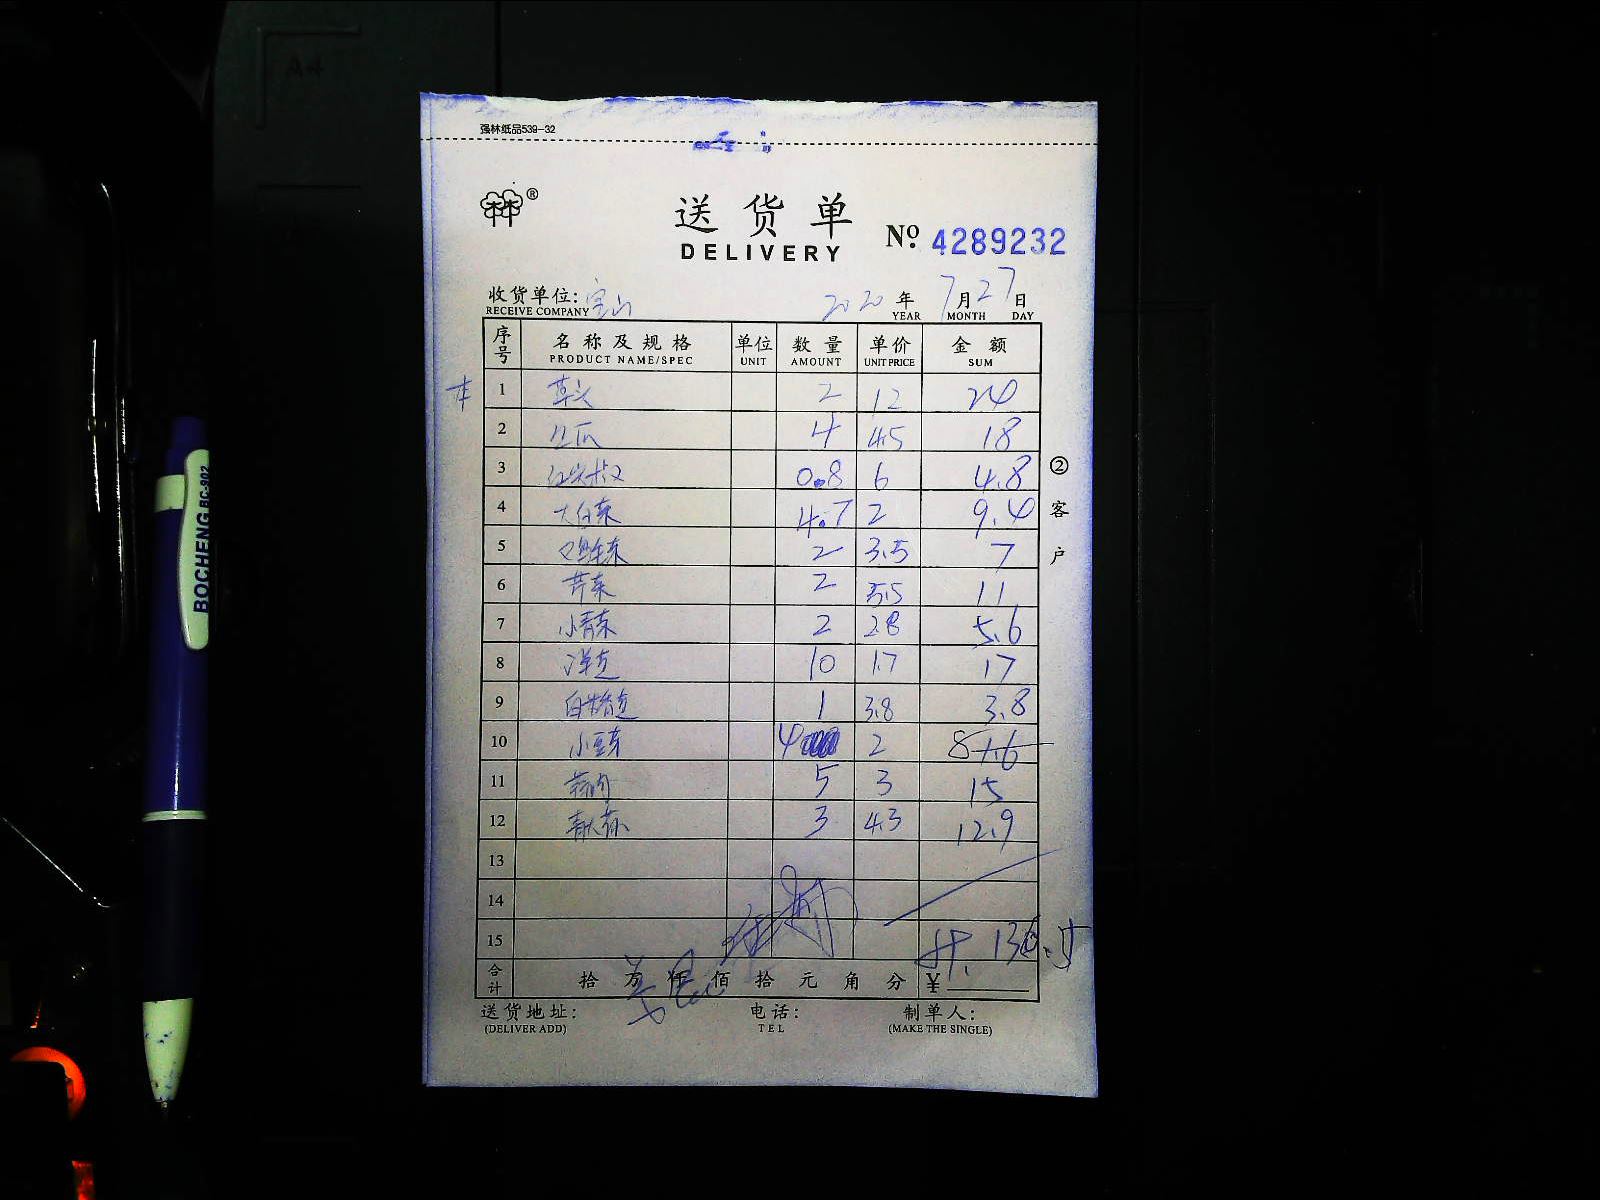 强林纸品539-32
林®
送货单
DELIVERY
No. 4289232
收货单位: 宝山 2020 年 7 月 27 日
RECEIVE COMPANY YEAR MONTH DAY
序号 名称及规格 单位 数量 单价 金额
PRODUCT NAME/SPEC UNIT AMOUNT UNIT PRICE SUM
1 草头 2 12 24
2 4 4.5 18
3 红尖椒 0.8 6 4.8
4 大白菜 4.7 2 9.4
5 鸡毛菜 2 3.5 7
6 芹菜 2 5.5 11
7 小青菜 2 2.8 5.6
8 洋葱 10 1.7 17
9 1 3.8 3.8
10 小豆芽 4 2 8
11 5 3 15
12 3 4.3 12.9
13
14
15 计. 136.5
合计 拾 万 仟 佰 拾 元 角 分 ¥
②客户
送货地址: 电话: 制单人:
(DELIVER ADD) TEL (MAKE THE SINGLE)
BOCHENG BC-902